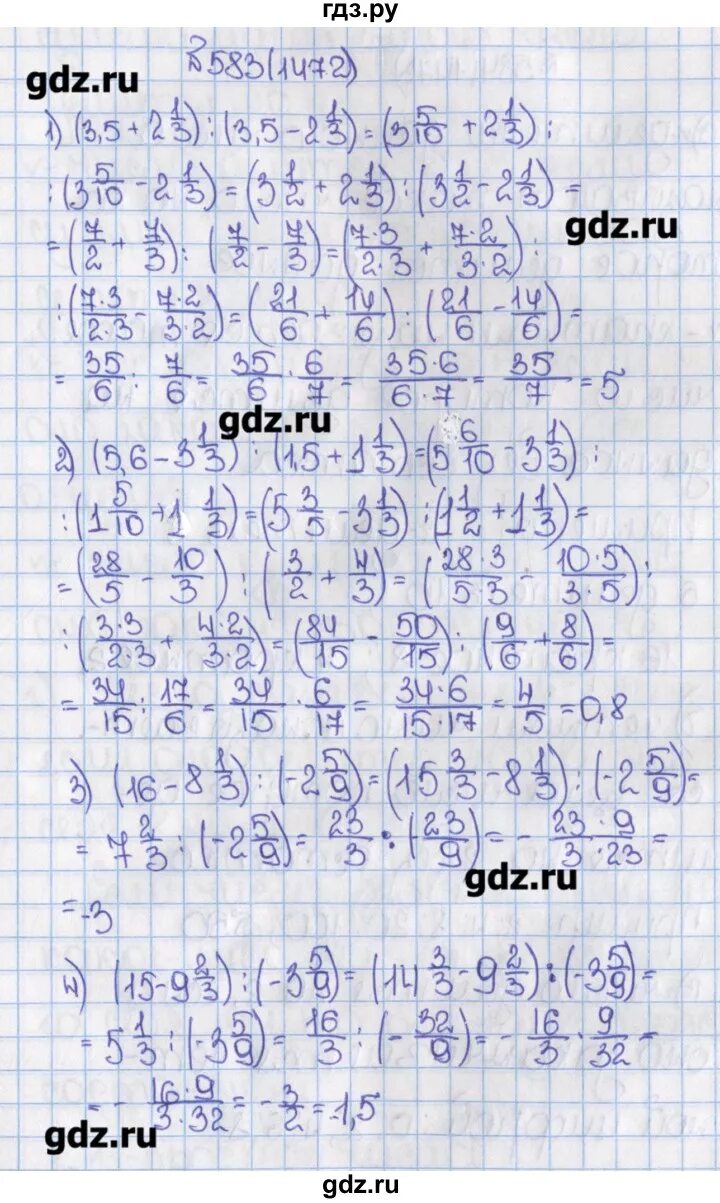 гдз.ру
№583(1472)
gdz.ru
1) (3,5 + 2 1/3) : (3,5 - 2 1/3) = (3 5/10 + 2 1/3) :
: (3 5/10 - 2 1/3) = (3 1/2 + 2 1/3) : (3 1/2 - 2 1/3) =
gdz.ru
= (7/2 + 7/3) : (7/2 - 7/3) = (7·3/2·3 + 7·2/3·2) :
: (7·3/2·3 - 7·2/3·2) = (21/6 + 14/6) : (21/6 - 14/6) =
= 35/6 : 7/6 = 35/6 · 6/7 = 35·6/6·7 = 35/7 = 5
gdz.ru
2) (5,6 - 3 1/3) : (1,5 + 1 1/3) = (5 6/10 - 3 1/3) :
: (1 5/10 + 1 1/3) = (5 3/5 - 3 1/3) : (1 1/2 + 1 1/3) =
= (28/5 - 10/3) : (3/2 + 4/3) = (28·3/5·3 - 10·5/3·5) :
: (3·3/2·3 + 4·2/3·2) = (84/15 - 50/15) : (9/6 + 8/6) =
= 34/15 : 17/6 = 34/15 · 6/17 = 34·6/15·17 = 4/5 = 0,8
3) (16 - 8 1/3) : (-2 5/9) = (15 3/3 - 8 1/3) : (-2 5/9) =
= 7 2/3 : (-2 5/9) = 23/3 : (-23/9) = - 23·9/3·23 =
gdz.ru
= -3
4) (15 - 9 2/3) : (-3 5/9) = (14 3/3 - 9 2/3) : (-3 5/9) =
= 5 1/3 : (-3 5/9) = 16/3 : (-32/9) = - 16/3 · 9/32 =
= - 16·9/3·32 = - 3/2 = -1,5
gdz.ru
gdz.ru